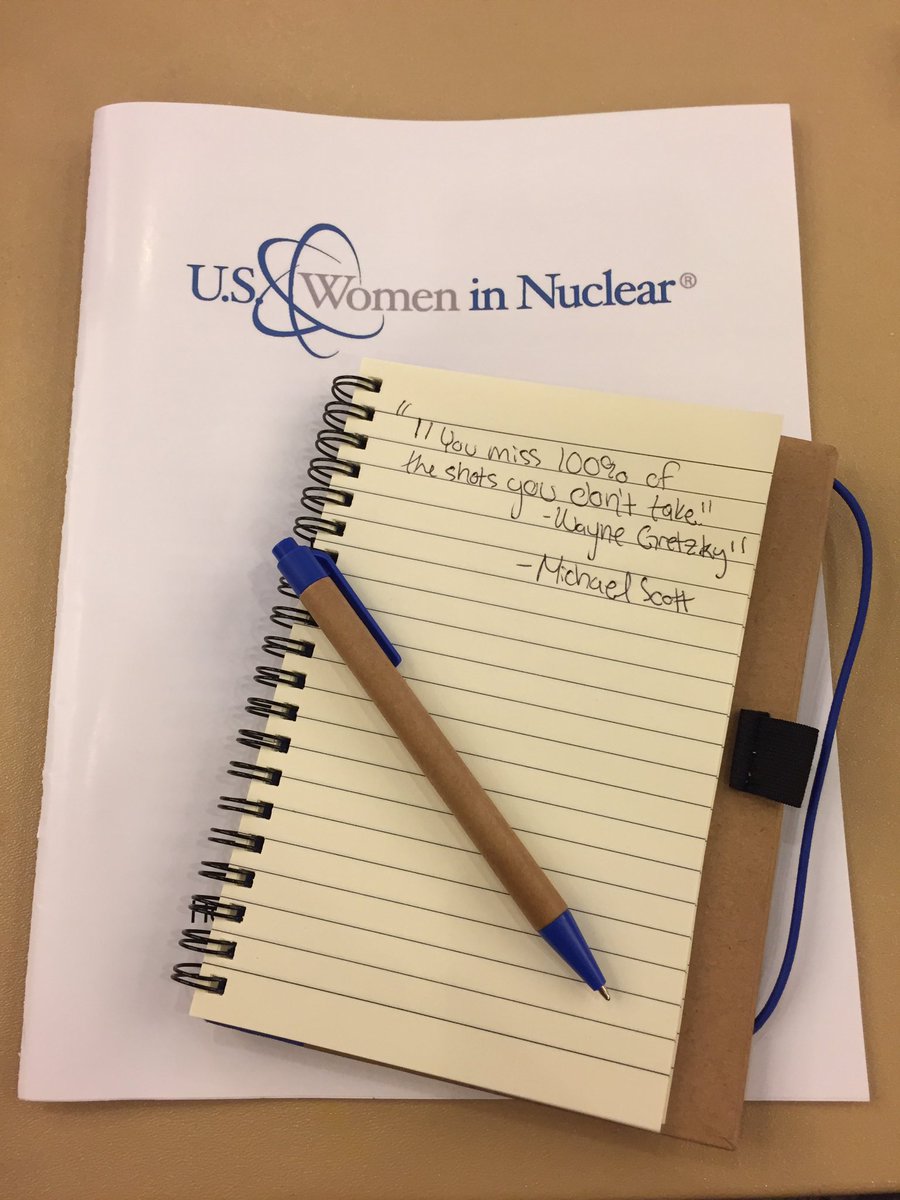 U.S. Women in Nuclear®
""You miss 100% of
the shots you don't take."
-Wayne Gretzky"
-Michael Scott